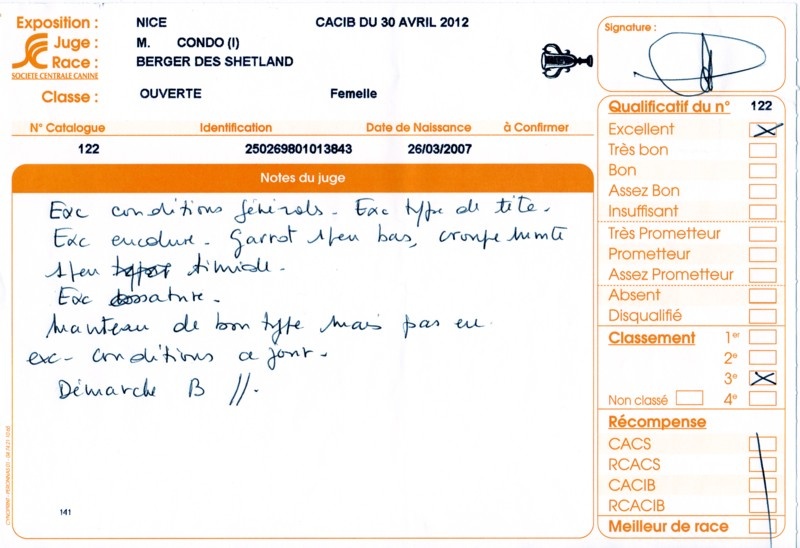 Exposition : NICE CACIB DU 30 AVRIL 2012
Juge : M. CONDO (I)
Race : BERGER DES SHETLAND
SOCIETE CENTRALE CANINE
Classe : OUVERTE Femelle
N° Catalogue Identification Date de Naissance à Confirmer
122 250269801013843 26/03/2007
Notes du juge
Exc conditions générals. Exc type de tête.
Exc encolure. Garrot 1 peu bas, croupe
1 peu timide.
Exc ossature.
Manteau de bon type mais pas en
exc. conditions ce jour.
Démarche B //.
141
Signature :
Qualificatif du n° 122
Excellent
Très bon
Bon
Assez Bon
Insuffisant
Très Prometteur
Prometteur
Assez Prometteur
Absent
Disqualifié
Classement 1er
2e
3e
Non classé 4e
Récompense
CACS
RCACS
CACIB
RCACIB
Meilleur de race